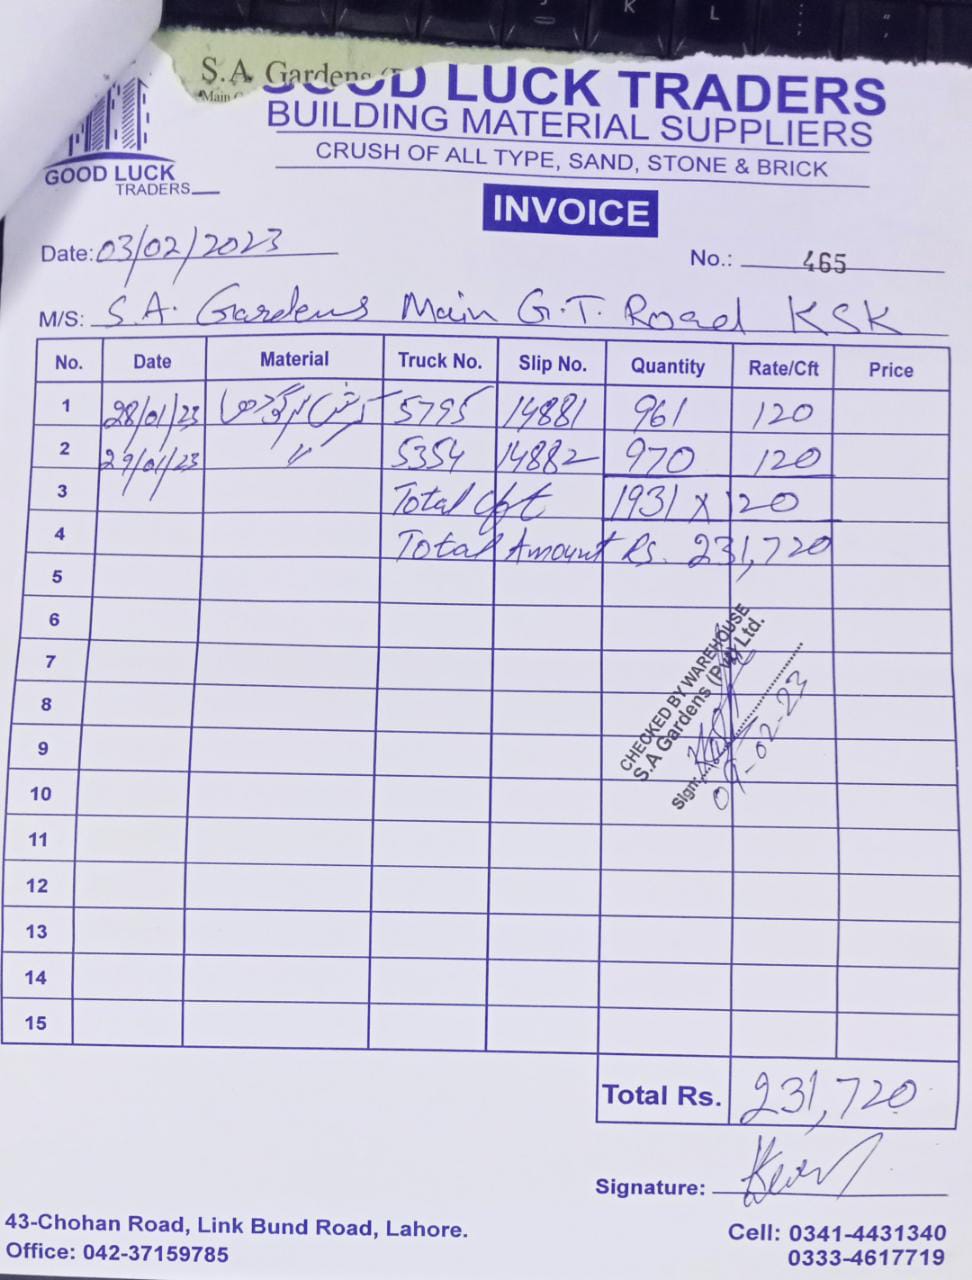 S.A. Gardens
Main
GOOD LUCK TRADERS
BUILDING MATERIAL SUPPLIERS
CRUSH OF ALL TYPE, SAND, STONE & BRICK
GOOD LUCK
TRADERS
INVOICE
Date: 03/02/2023
No.: 465
M/S: S.A. Gardens Main G.T. Road KSK
No. Date Material Truck No. Slip No. Quantity Rate/Cft Price
1 28/01/23 کرش 5795 14881 961 120
2 29/01/23 〃 5354 14882 970 120
3 Total Cft 1931 x 120
4 Total Amount Rs. 231,720
5
6
7
8
9
10
11
12
13
14
15
CHECKED BY WAREHOUSE
S.A Gardens (Pvt) Ltd.
Sign:
09-02-23
Total Rs. 231,720
Signature:
43-Chohan Road, Link Bund Road, Lahore.
Office: 042-37159785
Cell: 0341-4431340
0333-4617719